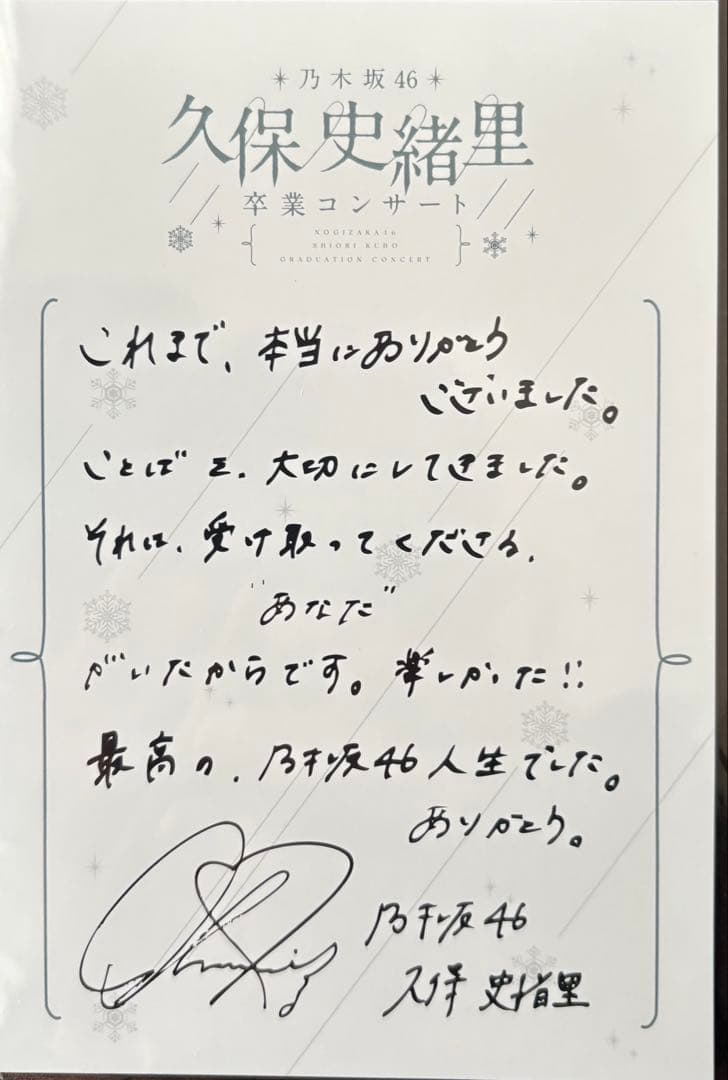 乃木坂46
久保史緒里
卒業コンサート
NOGIZAKA46
SHIORI KUBO
GRADUATION CONCERT
これまで、本当にありがとう
ございました。
ことばを、大切にしてきました。
それは、受け取ってくださる、
"あなた"
がいたからです。楽しかった!!
最高の、乃木坂46人生でした。
ありがとう。
乃木坂46
久保史緒里